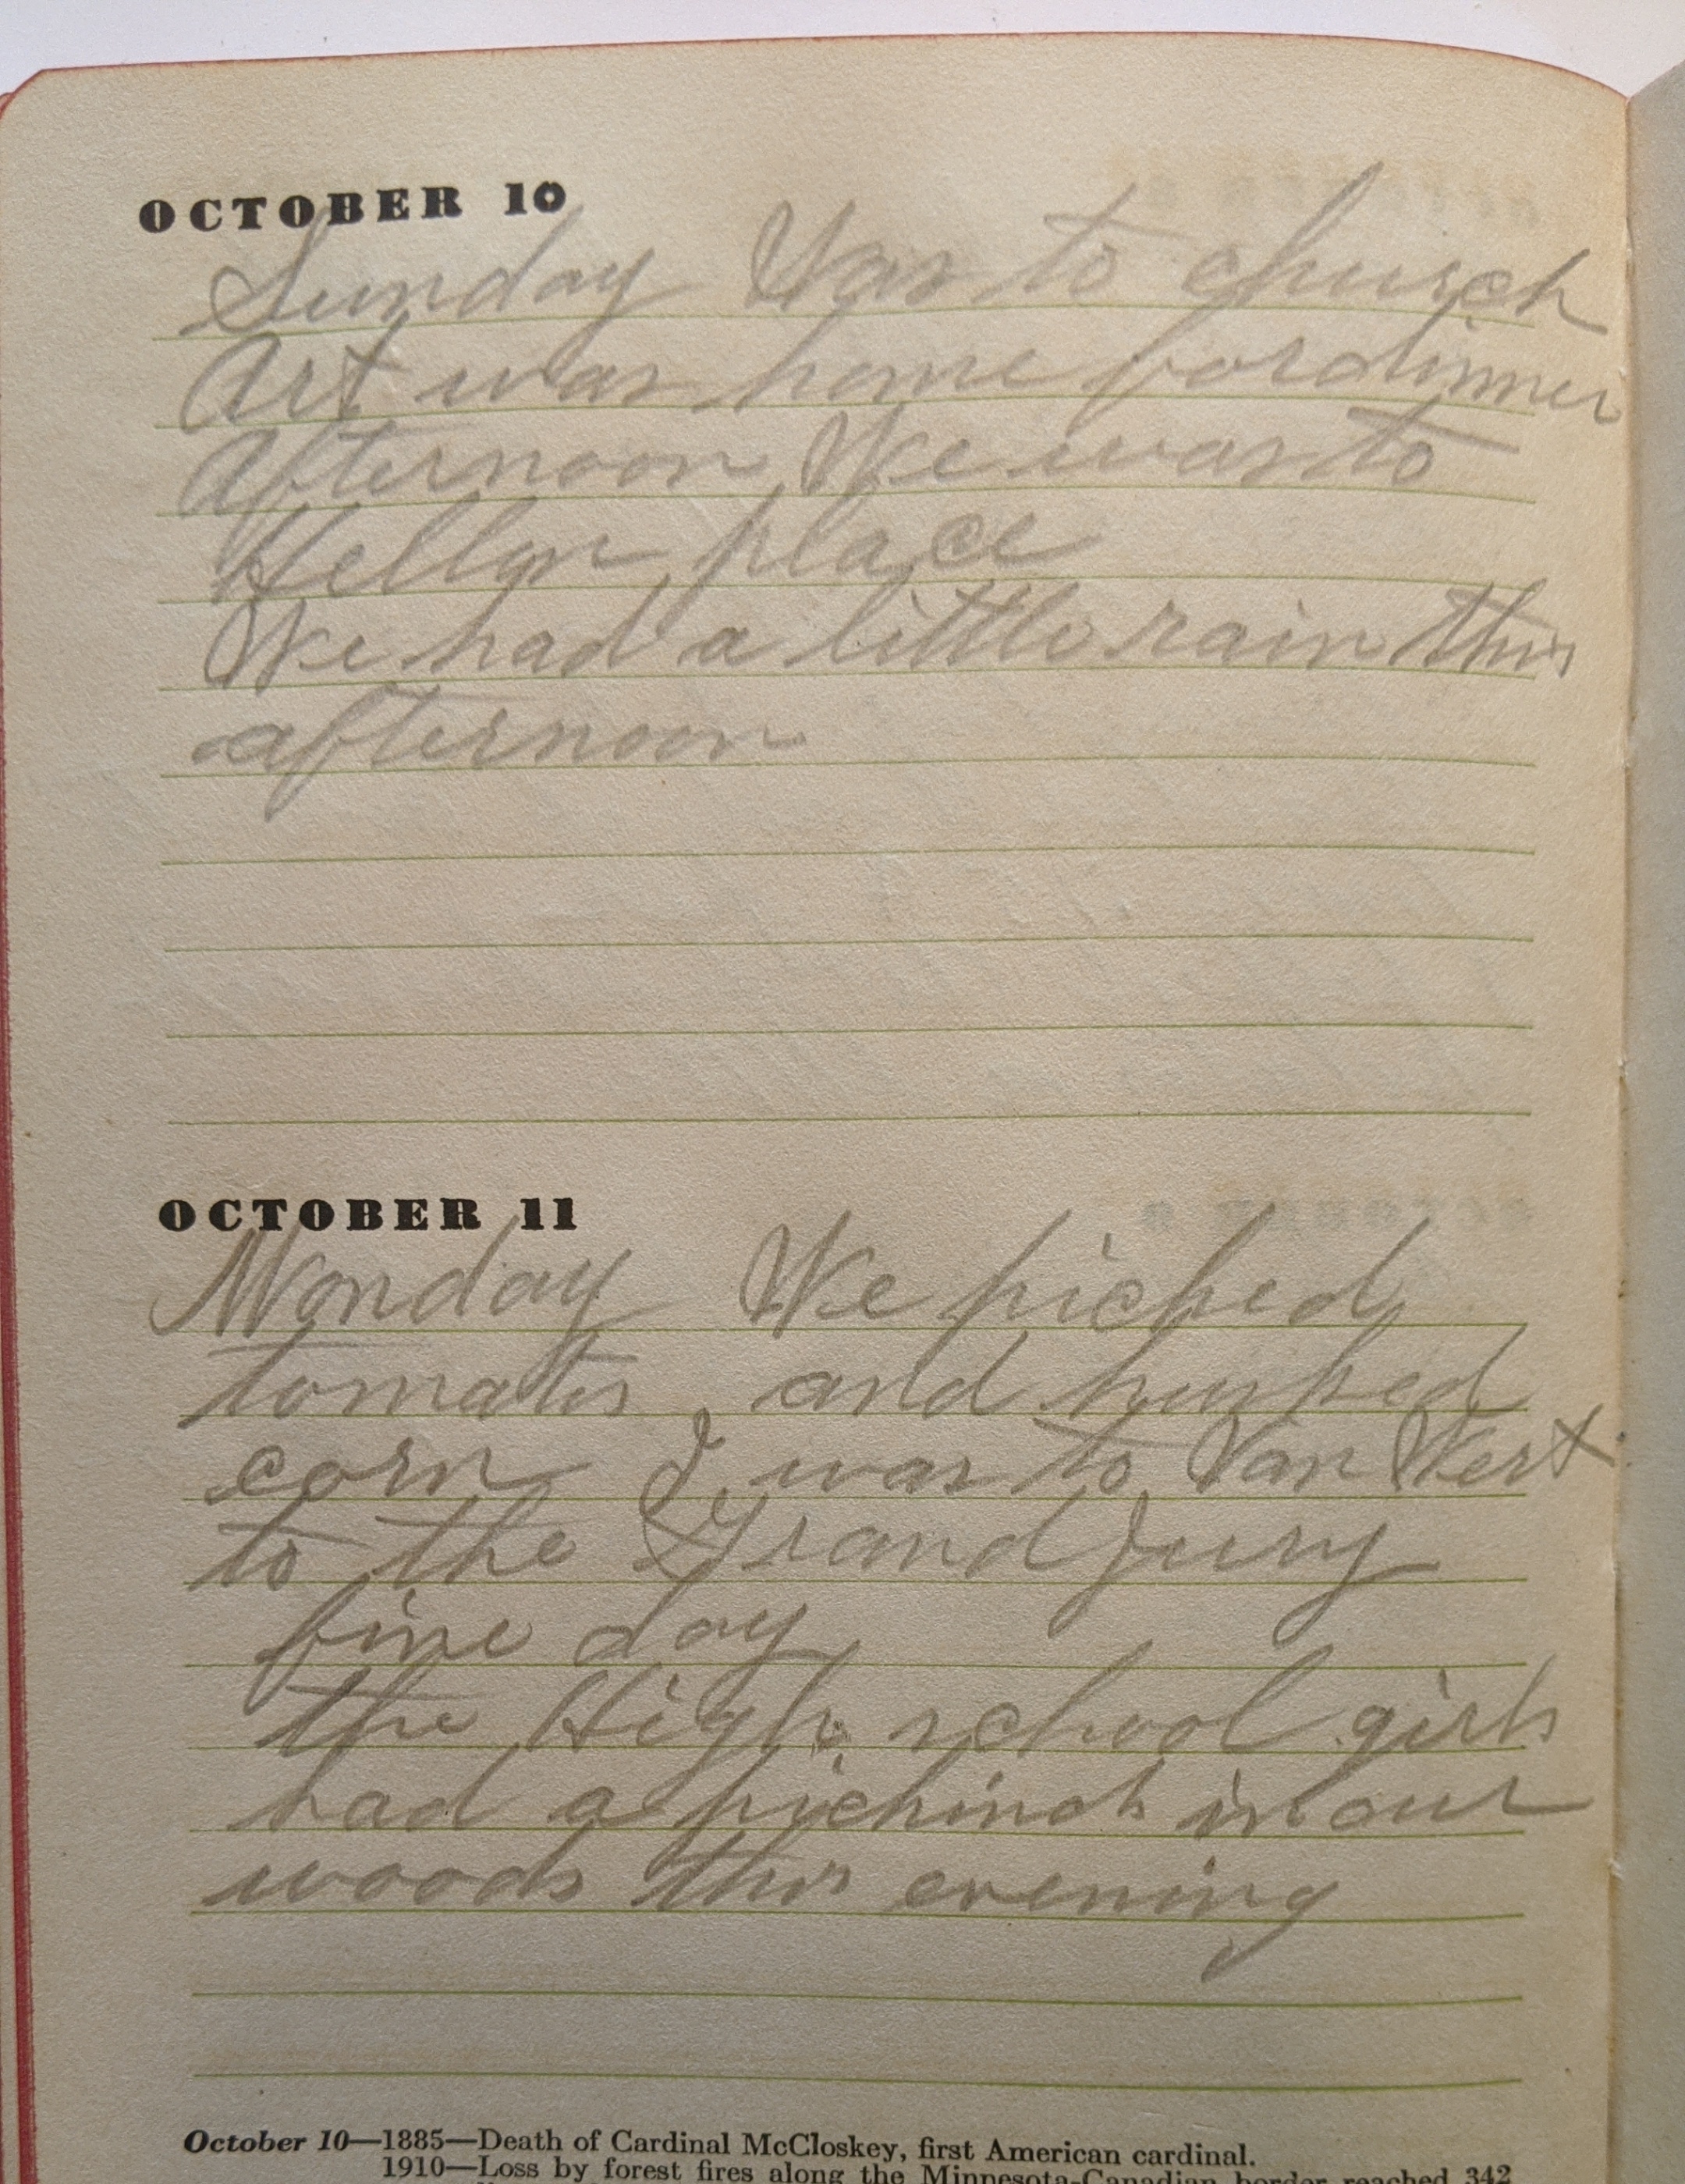 OCTOBER 10
Sunday Was to church
Art was home for dinner
Afternoon We was to
place
We had a little rain this
afternoon
OCTOBER 11
Monday We picked
tomatos and husked
corn I was to Van Wert
to the Grand Jury
fine day
the High school girls
had a in our
woods this evening
October 10—1885—Death of Cardinal McCloskey, first American cardinal.
1910—Loss by forest fires along the Minnesota-Canadian border reached 342